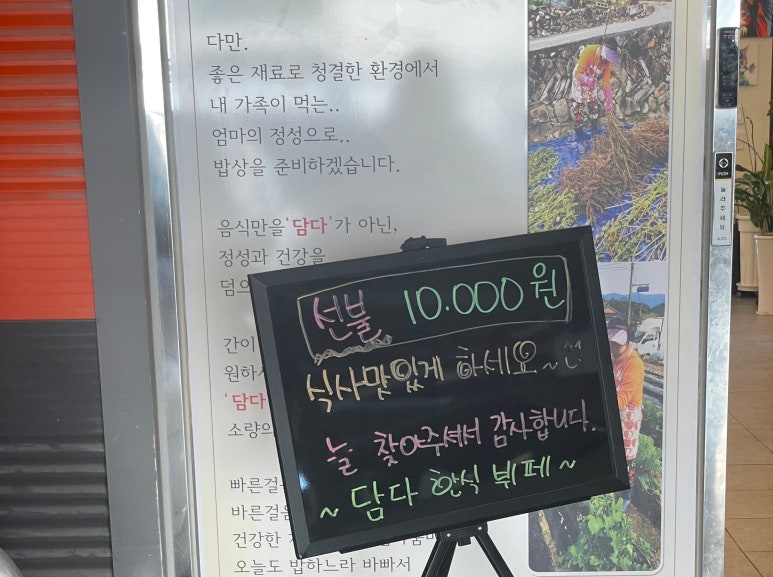 다만.
좋은 재료로 청결한 환경에서
내 가족이 먹는..
엄마의 정성으로..
밥상을 준비하겠습니다.
음식만을 '담다'가 아닌,
정성과 건강을
간이
'담다
빠른걸
바른걸음
건강한
오늘도 밥하느라 바빠서
선불 10.000원
식사맛있게 하세요~
늘 찾아주셔서 감사합니다.
~ 담다 한식 뷔페 ~
PUSH
눌러주세요
AUTO